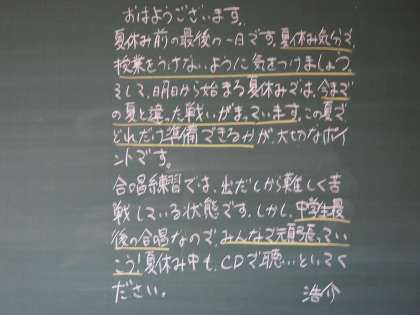 おはようございます。
夏休み前の最後の一日です。夏休み気分で、
授業をうけないように気をつけましょう。
そして、明日から始まる夏休みでは、今まで
の夏と違った戦いがまっています。この夏で
どれだけ準備できるかが、大切なポイ
ントです。
合唱練習では、出だしから難しく苦
戦している状態です。しかし、中学生最
後の合唱なので、みんなで頑張ってい
こう!夏休み中も、CDで聴いといてく
ださい。 浩介